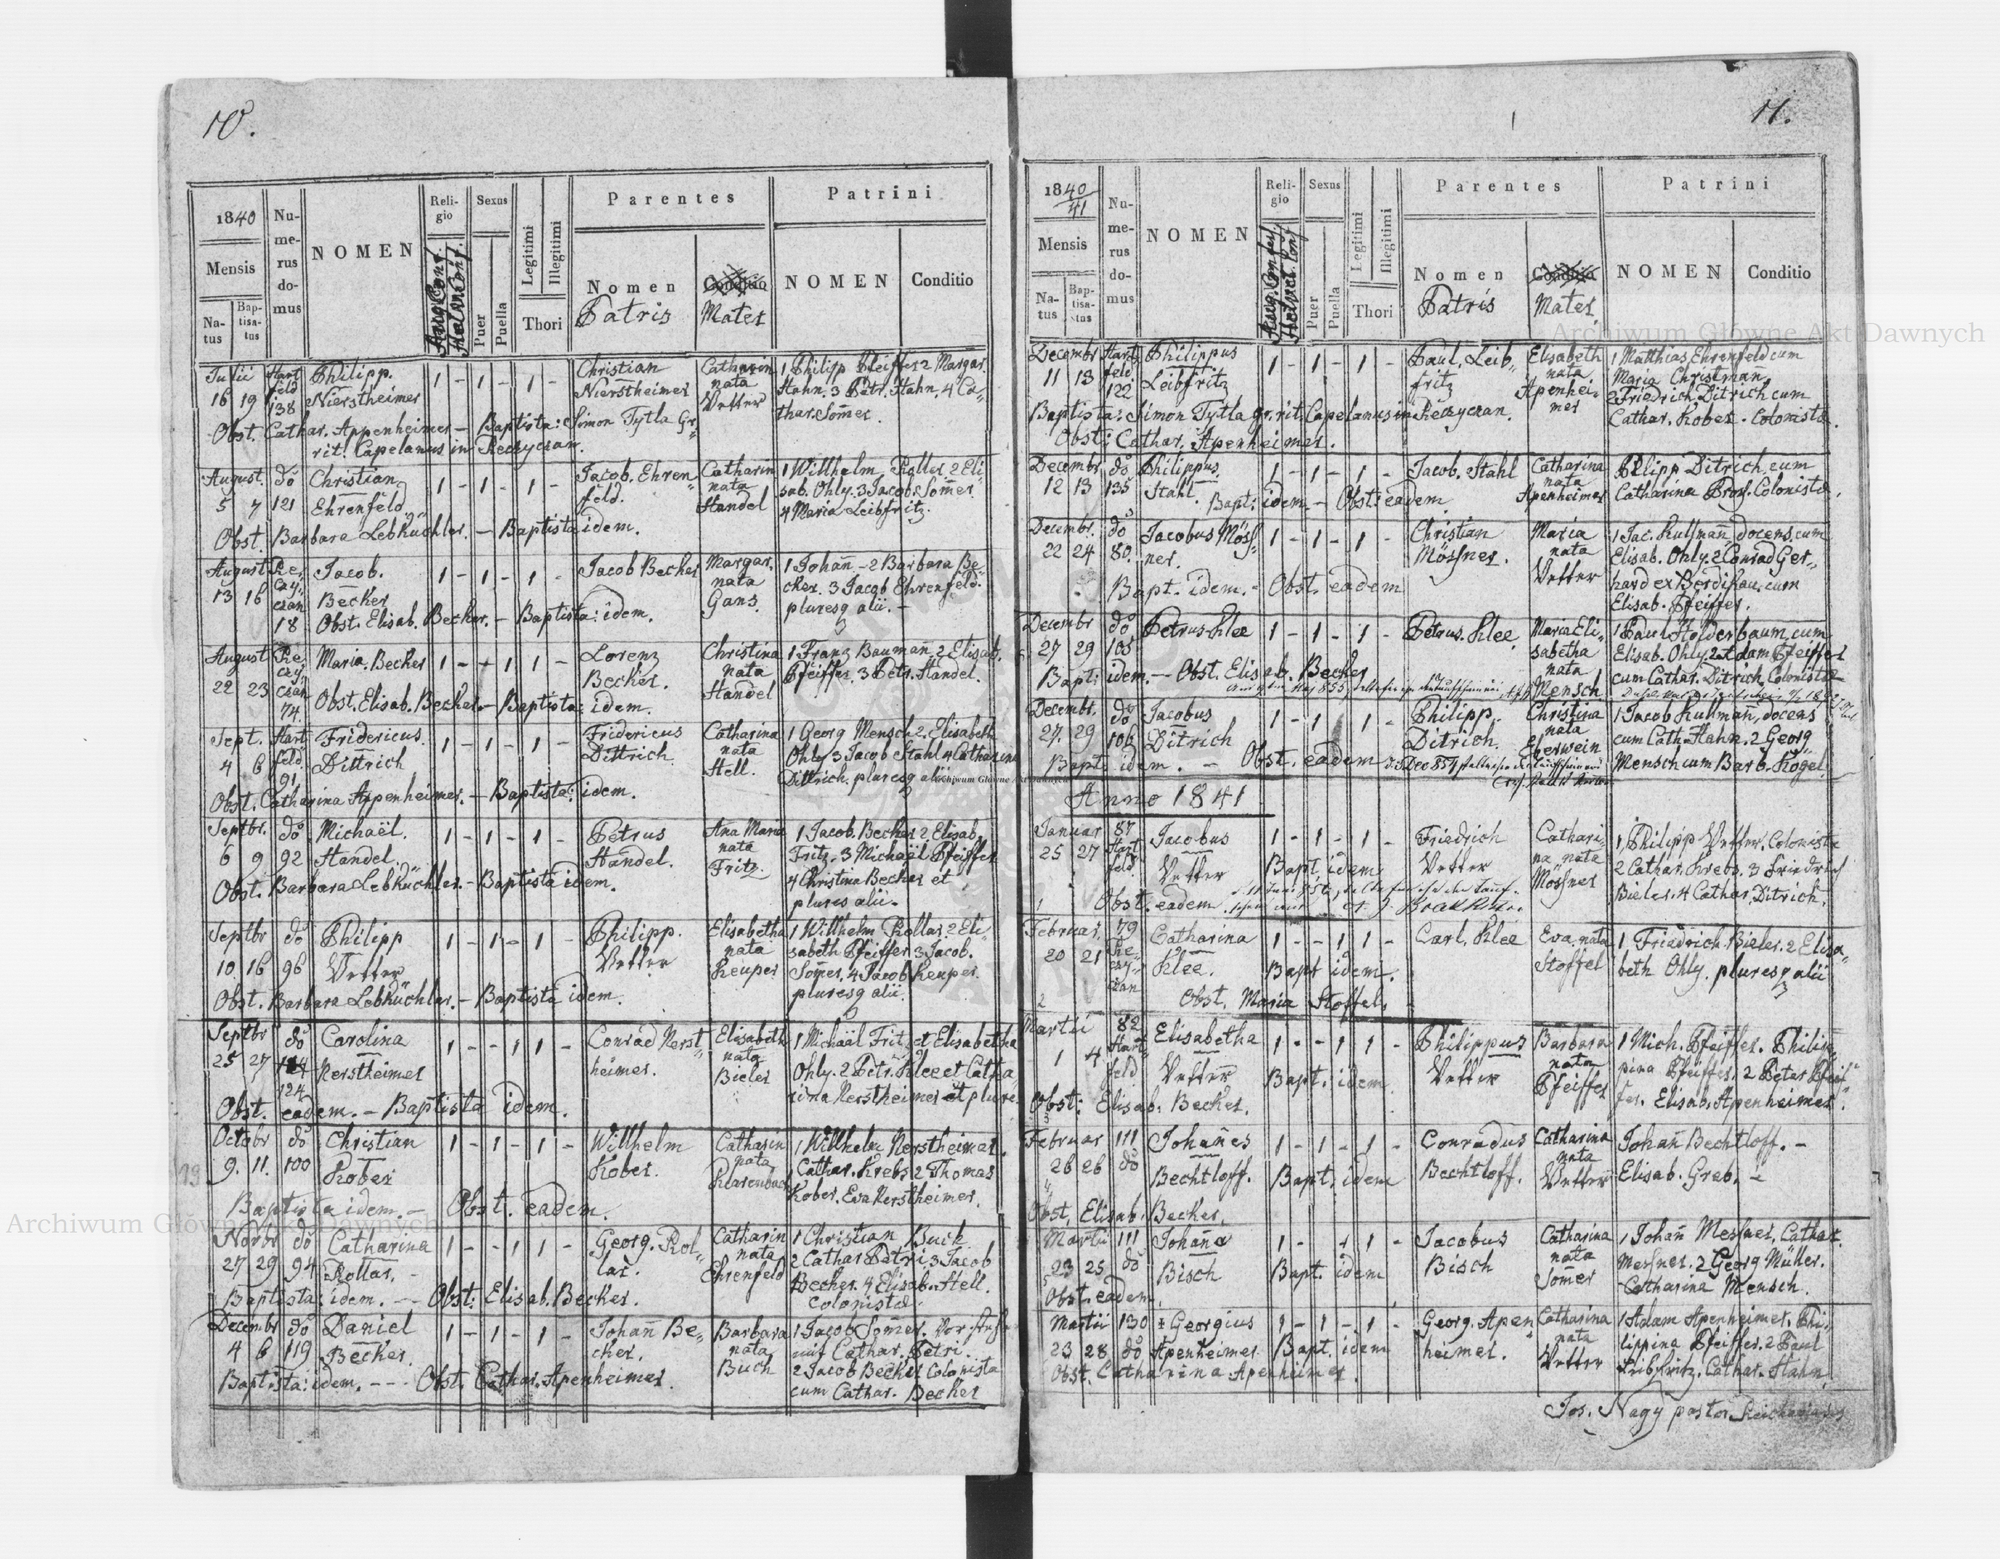 10.
1840
Mensis
Na-
tus
Bap-
tisa-
tus
Nu-
me-
rus
do-
mus
NOMEN
Reli-
gio
Aug. Conf.
Helv. Conf.
Sexus
Puer
Puella
Legitimi
Illegitimi
Thori
Parentes
Nomen
Patris
Conditio
Mater
Patrini
NOMEN
Conditio
Julii Hart Philipp. 1 - 1 - 1 - Christian Catharin 1 Philipp Pfeiffer 2 Margar.
16 19 feld 138 Nierstheimer Nierstheimer nata Vetter Hahn. 3 Petr. Hahn. 4 Ca-
thar. Somer.
Obst. Cathar. Appenheimer - Baptista: Simon Tytla Gr.
rit. Capelanus in Reczyczan.
August. do Christian 1 - 1 - 1 - Jacob. Ehren- Catharin 1 Willhelm Rollar 2 Eli-
5 7 121 Ehrenfeld feld. nata Handel sab. Ohly. 3 Jacob. Somer
4 Maria Leibfritz.
Obst. Barbara Lebküchler. - Baptista idem.
August Re- Jacob. 1 - 1 - 1 - Jacob Becher Margar. 1 Johañ - 2 Barbara Be-
13 16 czy- czan 18 Becher nata Gans. cher. 3 Jacob Ehrenfeld.
plures alii. -
Obst. Elisab. Becher. - Baptista: idem.
August Re- Maria. Becher 1 - + 1 1 - Lorenz Christina 1 Franz Bauman 2 Elisab.
22 23 czy- czan 74. Becher. nata Handel Pfeiffer. 3 Petr. Handel.
Obst. Elisab. Becher. - Baptista: idem.
Sept. Hart Fridericus. 1 - 1 - 1 - Fridericus Catharina 1 Georg Mensch 2. Elisabeth
4 6 feld. 91. Dittrich Dittrich. nata Hell. Ohly 3 Jacob Stahl 4 Catharina
Dittrich. plures alii.
Obst. Catharina Appenheimer. - Baptista: idem.
Septbr. do Michaël. 1 - 1 - 1 - Petrus Ana Maria 1 Jacob. Becher 2 Elisab.
6 9 92 Handel. Handel. nata Fritz. Fritz. 3 Michaël Pfeiffer
4 Christina Becher et
plures alii.
Obst. Barbara Lebküchler. - Baptista idem.
Septbr do Philipp 1 - 1 - 1 - Philipp. Elisabetha 1 Willhelm Rollar, 2 Eli-
10. 16 96 Vetter Vetter nata Keuper sabeth Pfeiffer 3 Jacob.
Somer. 4 Jacob Keuper.
plures alii.
Obst. Barbara Lebküchler. - Baptista idem.
Septbr do Carolina 1 - - 1 1 - Conrad Nerst- Elisabeth 1 Michaël Fritz et Elisabetha
25 27 124 Nerstheimer heimer. nata Bieler Ohly. 2 Petr. Klee et Catha-
rina Nerstheimer et plures
Obst. eadem. - Baptista idem.
Octobr do Christian 1 - 1 - 1 - Willhelm Catharin 1 Willhelm Nerstheimer.
9. 11. 100 Kober Kober. nata Cathar. Krebs 2 Thomas
Kober. Eva Nerstheimer.
Baptista idem. - Obst. eadem.
Novbr do Catharina 1 - - 1 1 - Georg. Rol- Catharin 1 Christian Buck
27 29 94 Rollar. - lar. nata Ehrenfeld 2 Cathar. Petri 3 Jacob
Becher. 4 Elisab. Hell.
Colonistæ.
Baptista: idem. - Obst: Elisab. Becher.
Decembr do Daniel 1 - 1 - 1 - Johañ Be- Barbara 1 Jacob Somer.
4 6 119 Becher. cher. nata Buch Cathar. Petri.
2 Jacob Becher Colonista
cum Cathar. Becher
Baptista: idem. - - - Obst. Cathar. Apenheimer.
11.
1840/41
Mensis
Na-
tus
Bap-
tisa-
tus
Nu-
me-
rus
do-
mus
NOMEN
Reli-
gio
Aug. Confes.
Helvet. Conf.
Sexus
Puer
Puella
Legitimi
Illegitimi
Thori
Parentes
Nomen
Patris
Conditio
Mater
Patrini
NOMEN
Conditio
Decembr Hart Philippus 1 - 1 - 1 - Paul. Leib- Elisabeth 1 Matthias Ehrenfeld cum
11 13 feld 122 Leibfritz fritz nata Apenhei- mer Maria Christmañ
2 Friedrich Ditrich cum
Cathar. Kober. Colonistæ.
Baptista: Simon Tytla gr. rit. Capelanus in Reczyczan.
Obst: Cathar. Apenheimer.
Decembr. do Philippus 1 - 1 - 1 - Jacob. Stahl Catharina Philipp Ditrich, cum
12 13 135 Stahl. nata Apenheimer Catharina Colonistæ.
Bapt: idem - Obst: eadem.
Decembr. do Jacobus Möss- 1 - 1 - 1 - Christian Maria 1 Jac. Kullmañ, docens, cum
22 24 80. ner. Mössner. nata Vetter Elisab. Ohly. 2 Conrad Ger-
hard ex Berdikau. cum
Elisab. Pfeiffer.
Bapt. idem. - Obst. eadem
Decembr do Petrus Klee 1 - 1 - 1 - Petrus. Klee Maria Eli- 1 Paul Holderbaum, cum
27 29 105 sabetha nata Mensch Elisab. Ohly 2 Adam Pfeiffer
cum Cathar. Ditrich. Colonistæ
Bapt: idem. - Obst. Elisab. Becher
Decembr. do Jacobus 1 - 1 - 1 - Philipp. Christina 1 Jacob Kullmañ, docens
27. 29 106 Ditrich Ditrich. nata Eberwein cum Cath. Hahn. 2 Georg
Mensch cum Barb. Kogel.
Bapt. idem. - Obst. eadem
Anno 1841
Januar 87 Jacobus 1 - 1 - 1 - Friedrich Cathari- 1 Philipp Vetter. Colonista
25 27 Hart feld. Vetter Vetter na nata Mösner 2 Cathar. Krebs. 3 Friedrich
Bieler. 4 Cathar. Ditrich.
Bapt. idem
Obst. eadem
Februar. 79 Catharina 1 - - 1 1 - Carl. Klee Eva nata 1 Friedrich Bieler. 2 Elisa-
20 21 Re- czy- czan Klee. Stoffel beth Ohly. plures alii
Bapt idem.
Obst. Maria Stoffel.
Martii 82 Elisabetha 1 - - 1 1 - Philippus Barbara 1 Mich. Pfeiffer. Philip-
1 4 Hart- feld Vetter Vetter nata Pfeiffer pina Pfeiffer, 2 Peter Pfeif-
fer. Elisab. Apenheimer.
Bapt: idem
Obst: Elisab. Becher.
Februar 111 Johañes 1 - 1 - 1 - Conradus Catharina Johañ Bechtloff. -
26 26 do Bechtloff. Bapt. idem Bechtloff. nata Vetter Elisab. Greb. -
Obst, Elisab. Becher.
Martii 111 Johaña 1 - - 1 1 - Jacobus Catharina 1 Johañ Messner, Cathar.
23 25 do Bisch Bapt. idem Bisch nata Somer Messner. 2 Georg Müller.
Catharina Mensch.
Obst. eadem.
Martii 130 Georgius 1 - 1 - 1 - Georg. Apen Catharina 1 Adam Apenheimer. Phi-
23 28 do Apenheimer Bapt. idem heimer. nata Vetter lippina Pfeiffer. 2 Paul
Leibfritz. Cathar. Hahn.
Obst. Catharina Apenheimer.
Jos. Nagy pastor
Archiwum Główne Akt Dawnych
Archiwum Główne Akt Dawnych
Archiwum Główne Akt Dawnych